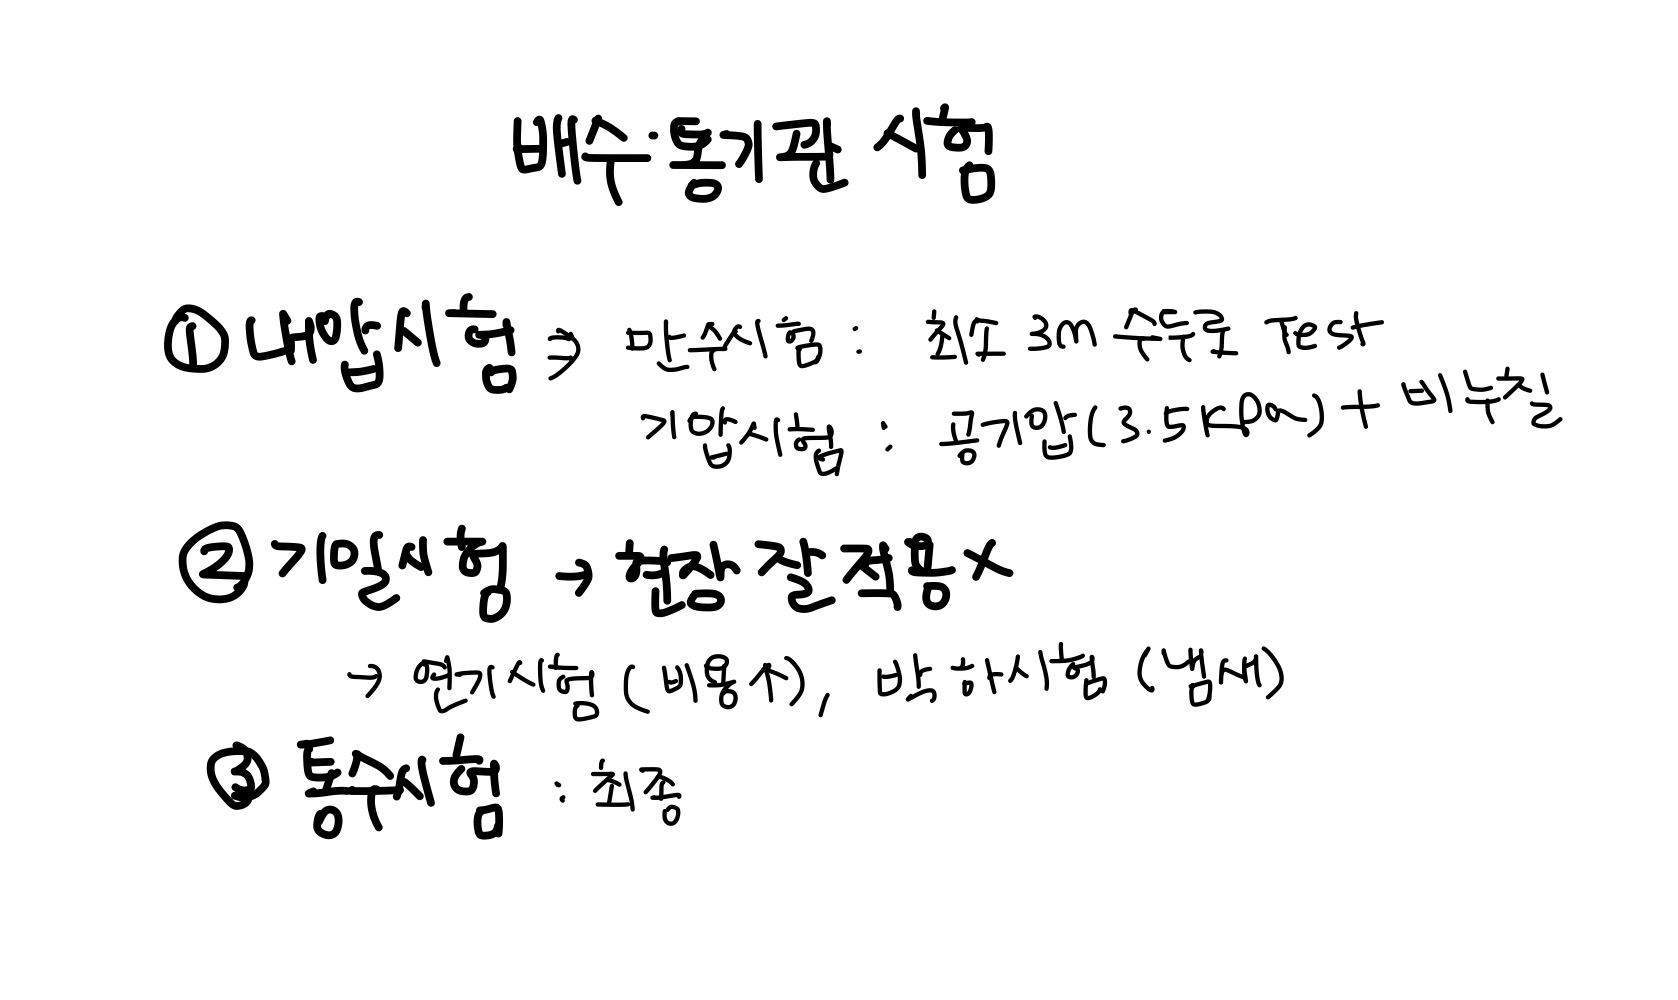 배수·통기관 시험
① 내압시험 ⇒ 만수시험 : 최소 3m 수두로 Test
기압시험 : 공기압(3.5KPa) + 비누칠
② 기밀시험 → 현장 잘 적용 X
→ 연기시험 (비용↑), 박하시험 (냄새)
③ 통수시험 : 최종